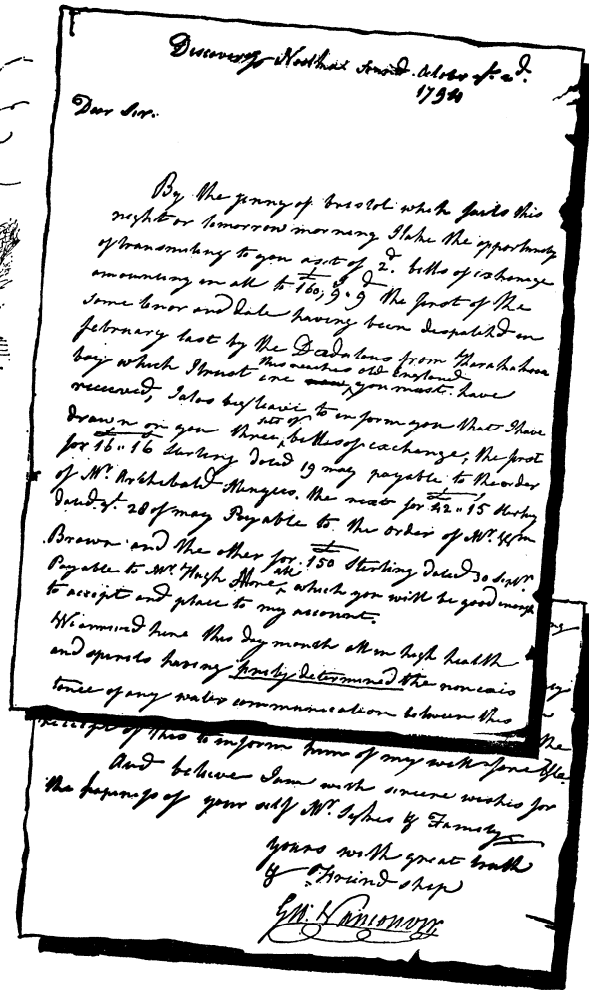 Discovery Nootka Sound. October ye. 2d.
1794
Dear Sir.
By the Jenny of bristol which sails this
night or tomorrow morning I take the opportunity
of transmitting to you a set of 2d. bills of exchange
amounting in all to 160,, 9,, 9 the first of the
same tenor and date having been despatchd in
february last by the Dædalus from Karakakooa
bay which I trust this reaches old England
ere you must have
received, I also beg leave to inform you that I have
drawn on you three sets of billes of exchange, the first
for 16,, 16 Sterling dated 19 may payable to the order
of Mr. Archibald Menzies. the next for 42,, 15 Sterling
dated ye. 28 of may Payable to the order of Mr. Wm
Brown and the other for 150 Sterling dated 30 Septr
Payable to Mr. Hugh all which you will be good enough
to accept and place to my account.
We arrived here this day month all in high health
and spirits having pretty determined the nonexis
tence of any water communication between this
the
receipt of this to inform him of my with
And believe I am with sincere wishes for
the happiness of your self Mr. Sykes & Family
yours with great truth
& Friendship
Geo. Vancouver